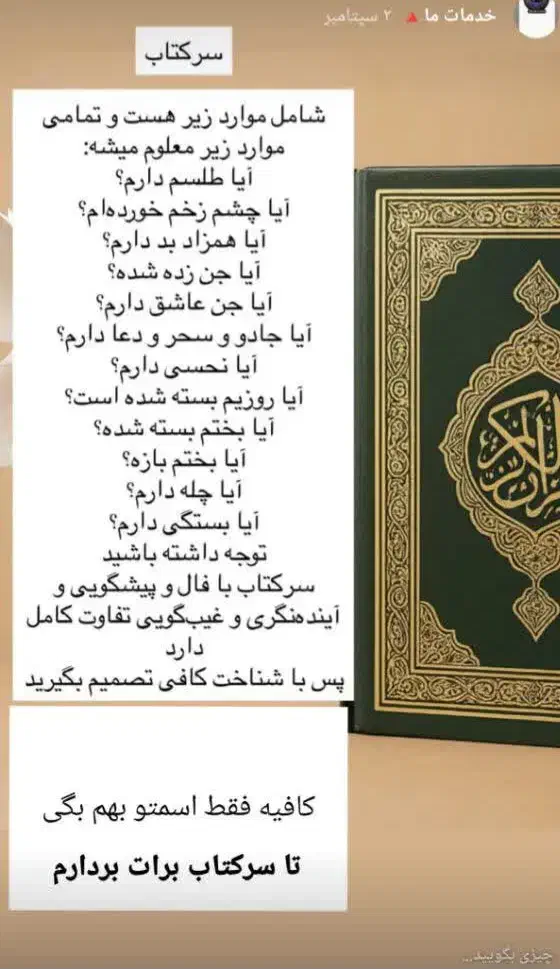 خدمات ما 🔺 ۲ سپتامبر
سرکتاب
شامل موارد زیر هست و تمامی
موارد زیر معلوم میشه:
آیا طلسم دارم؟
آیا چشم زخم خورده‌ام؟
آیا همزاد بد دارم؟
آیا جن زده شده؟
آیا جن عاشق دارم؟
آیا جادو و سحر و دعا دارم؟
آیا نحسی دارم؟
آیا روزیم بسته شده است؟
آیا بختم بسته شده؟
آیا بختم بازه؟
آیا چله دارم؟
آیا بستگی دارم؟
توجه داشته باشید
سرکتاب با فال و پیشگویی و
آینده‌نگری و غیب‌گویی تفاوت کامل
دارد
پس با شناخت کافی تصمیم بگیرید
کافیه فقط اسمتو بهم بگی
تا سرکتاب برات بردارم
چیزی بگویید...